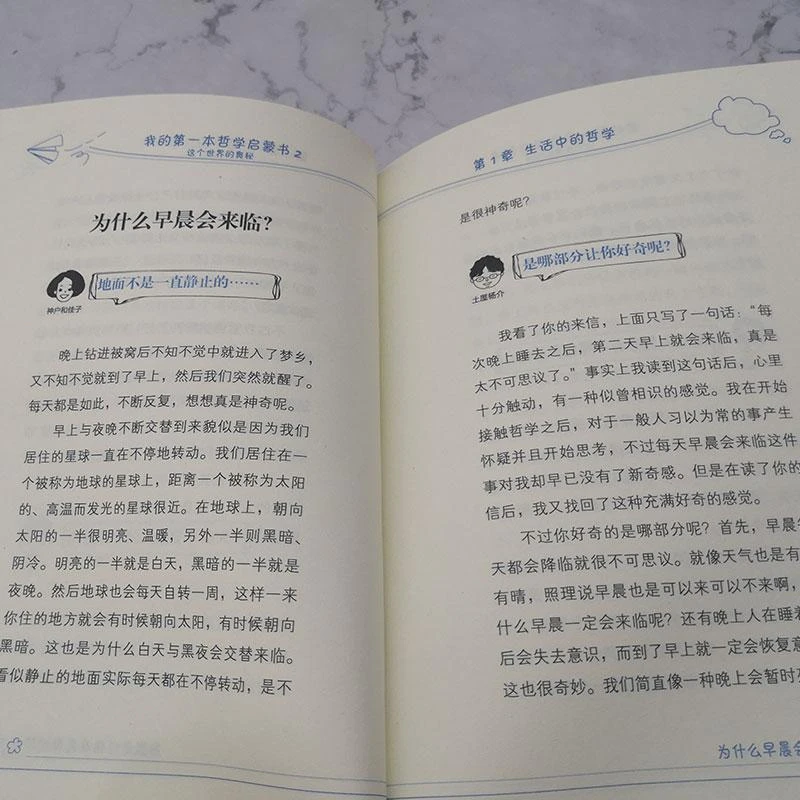 我的第一本哲学启蒙书2
这个世界的奥秘
为什么早晨会来临?
地面不是一直静止的……
神户和佳子
晚上钻进被窝后不知不觉中就进入了梦乡,
又不知不觉就到了早上,然后我们突然就醒了。
每天都是如此,不断反复,想想真是神奇呢。
早上与夜晚不断交替到来貌似是因为我们
居住的星球一直在不停地转动。我们居住在一
个被称为地球的星球上,距离一个被称为太阳
的、高温而发光的星球很近。在地球上,朝向
太阳的一半很明亮、温暖,另外一半则黑暗、
阴冷。明亮的一半就是白天,黑暗的一半就是
夜晚。然后地球也会每天自转一周,这样一来
你住的地方就会有时候朝向太阳,有时候朝向
黑暗。这也是为什么白天与黑夜会交替来临。
看似静止的地面实际每天都在不停转动,是不
第1章 生活中的哲学
是很神奇呢?
是哪部分让你好奇呢?
土屋杨介
我看了你的来信,上面只写了一句话:“每
次晚上睡去之后,第二天早上就会来临,真是
太不可思议了。”事实上我读到这句话后,心里
十分触动,有一种似曾相识的感觉。我在开始
接触哲学之后,对于一般人习以为常的事产生
怀疑并且开始思考,不过每天早晨会来临这件
事对我却早已没有了新奇感。但是在读了你的
信后,我又找回了这种充满好奇的感觉。
不过你好奇的是哪部分呢?首先,早晨
天都会降临就很不可思议。就像天气也是有
有晴,照理说早晨也是可以来可以不来啊,
什么早晨一定会来临呢?还有晚上人在睡着
后会失去意识,而到了早上就一定会恢复意
这也很奇妙。我们简直像一种晚上会暂时
为什么早晨会